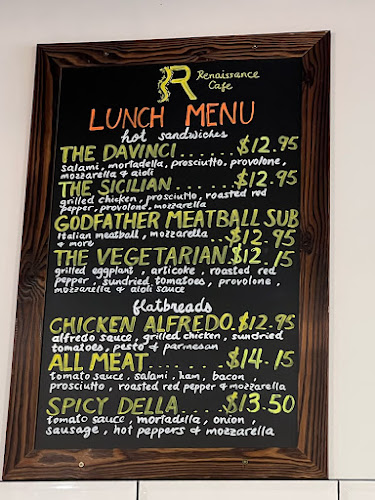 R Renaissance
Cafe
LUNCH MENU
hot sandwiches
THE DAVINCI......$12.95
salami, mortadella, prosciutto, provolone,
mozzarella & aioli
THE SICILIAN......$12.95
grilled chicken, prosciutto, roasted red
pepper, provolone, mozzarella
GODFATHER MEATBALL SUB
Italian meatball, mozzarella
& more ...$12.95
THE VEGETARIAN.$12.15
grilled eggplant, articoke, roasted red
pepper, sundried tomatoes, provolone,
mozzarella & aioli sauce
flatbreads
CHICKEN ALFREDO.$12.95
alfredo sauce, grilled chicken, sundried
tomatoes, pesto & parmesan
ALL MEAT.......$14.15
tomato sauce, salami, ham, bacon,
prosciutto, roasted red pepper & mozzarella
SPICY DELLA.....$13.50
tomato sauce, mortadella, onion,
sausage, hot peppers & mozzarella